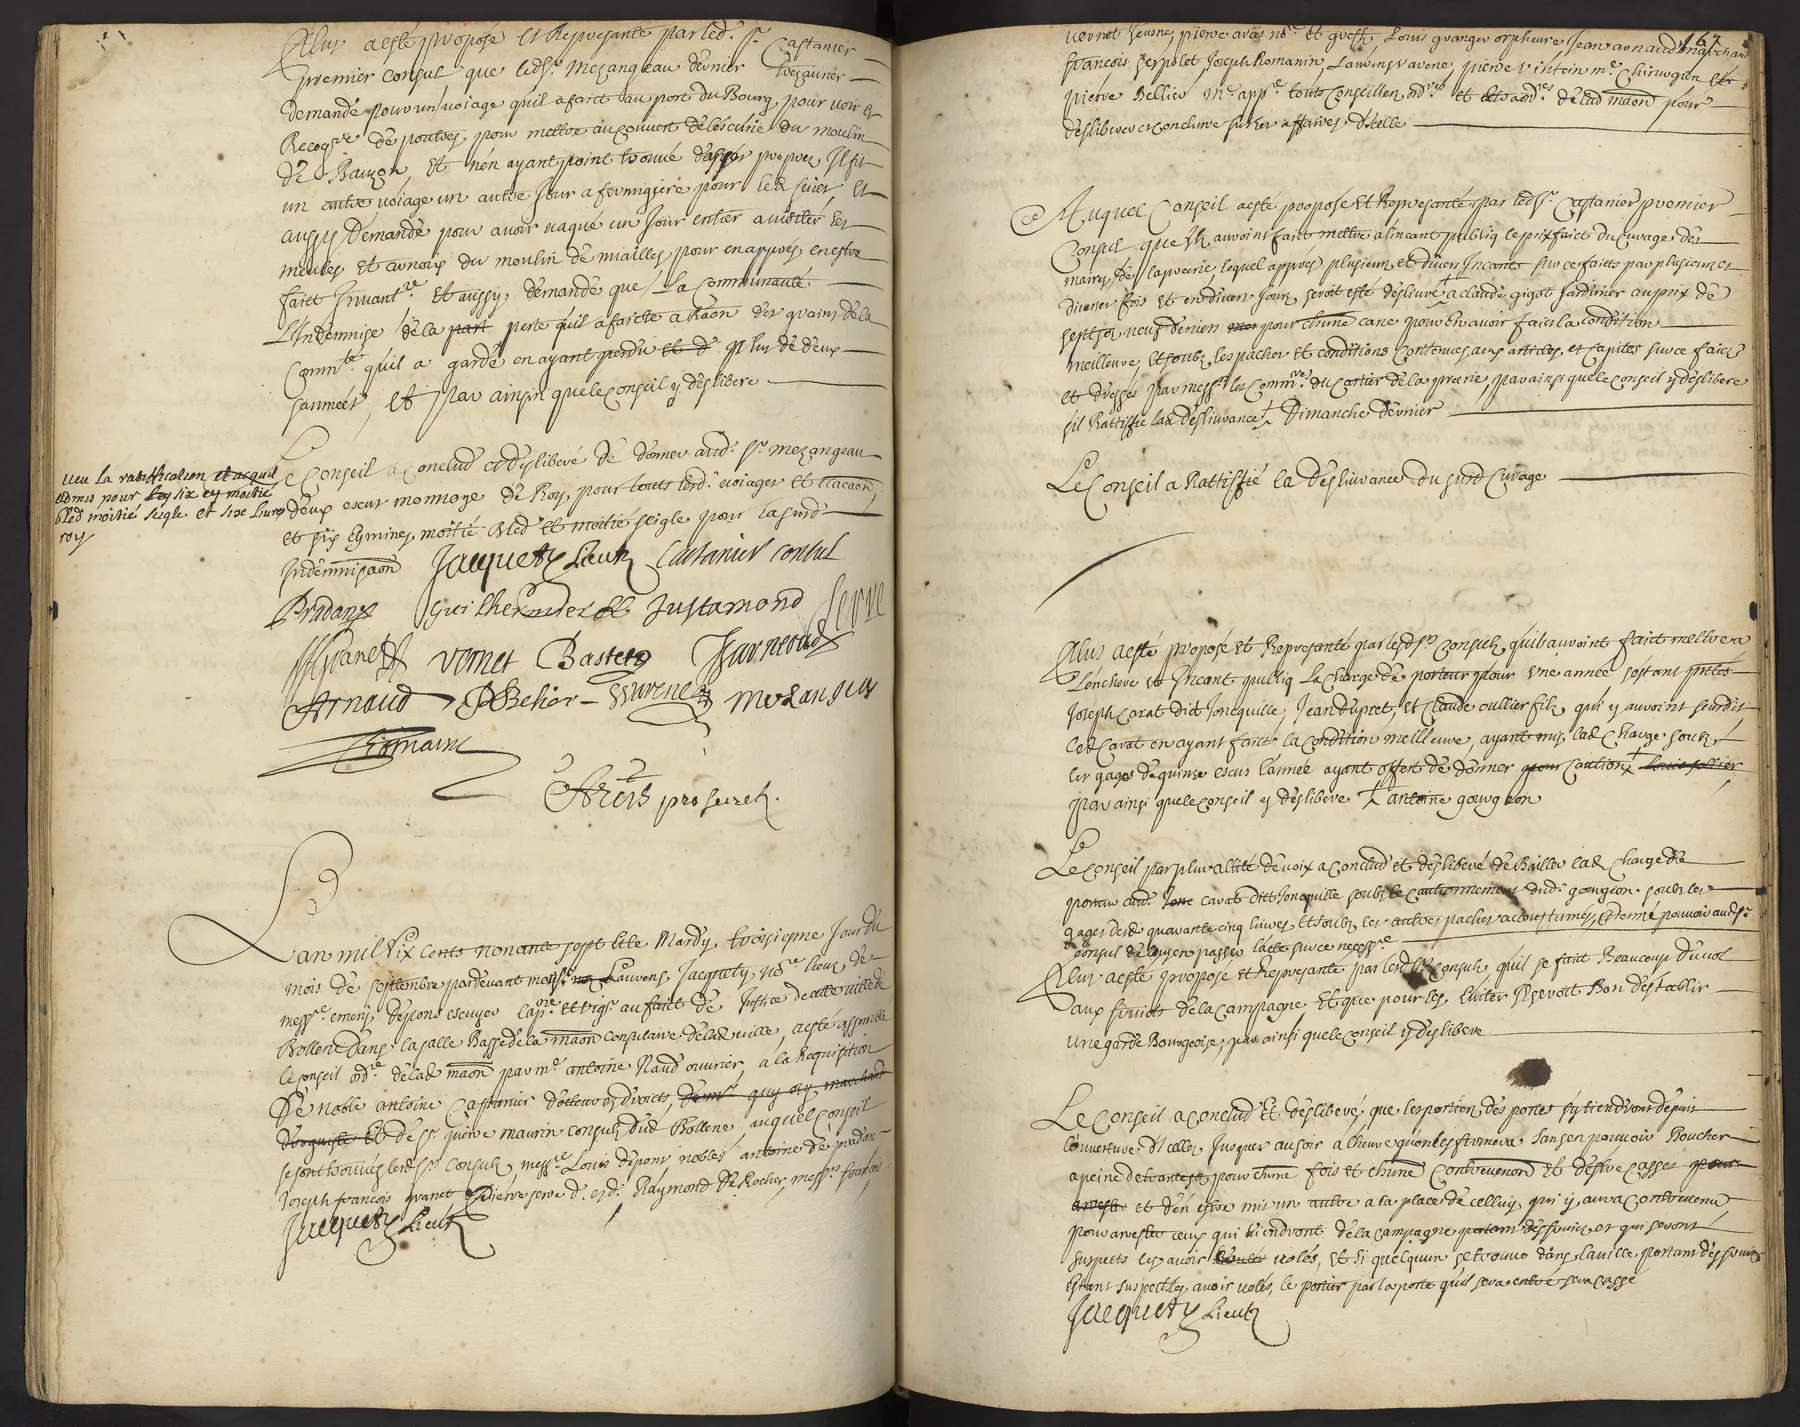 Plus aesté proposé et Representé par led. Sr Castanier
premier Consul que led Sr Mezangeau dernier thezaurier
demande pour un voiage quil a faict au port du Bourg pour voir et
Recogre de poultres pour mettre au couvert de lescurie du moulin
de Bauzon, Et nen ayant point trouvé dasses propres Il fit
un autre voiage un autre Jour a fermigiere pour led suiet, et
aussy demande pour avoir vaqué un Jour entier a visiter les
meules et arnois du moulin de miailles, pour en appres en estre
faict Invantre, et aussy, demande que La Communauté
L'Indemnise de la part perte quil a faicte a Raon des grains de la
Commté quil a gardé en ayant perdu et d plus de deux
saumées, et par ainsin que le Conseil y deslibere
Le Conseil a conclud et deslibéré de donner aud. Sr mezangeau
deux escus monnoye de Roy, pour touts lesd. voiages et vacaon,
et six eymines moitié bled et moitié seigle pour lasusd
Indemnisaon
veu la rattification et acquit
admis pour les six ey moitié
bled moitié seigle et six livres
roy
Jacquety Lieut Castanier consul
Pradans Guilhermier Justamond Serre
Granet Vernet Bastet
Arnaud P Belier Mezangeau
Romanin
Areis pro secret.
L'an mil Six Cents nonante sept Et le Mardy troisiesme Jour du
mois de septembre pardevant monsr me Laurens Jacquety nore lieut de
messre emery despons escuyer Capne et Vigr au faict de Justice de cette ville de
Bollene, dans la salle Basse de la maon Consulaire de lad ville, a esté assemblé
le Conseil ordre de lad maon par me antoine Naud ouvrier, a la Requisition
De noble antoine Castanier docteur ez droicts de mr guy ey marchand
droguiste Et de Sr pierre maurin consuls dud Bollene, auquel Conseil
se sont trouvés lesd Srs Consuls, messre Louis despons nobles antoine de pradan
Joseph francois granet Pierre serre d. ez d. Raymond De Rocher, messrs francois
Jacquety Lieut
167
vernet Jeusne, pierre areis nore et greffr, Louis granger orpheure, Jean arnaud marchant
francois serpolet, Joseph Romanin, Laurens varene, pierre vintein me Chirurgien et
pierre Bellier me appre touts Conseillers ordres et extraordres de lad maon pour
deslibérer et conclurre sur les affaires d'Icelle
Auquel Conseil a esté proposé et Representé par led Sr Castanier premier
Consul que Ilz auroint faict mettre a lincant publiq le prixfaict du Curage des
maires de la prerie, lequel appres plusieurs et divers Incants sur ce faicts par plusieurs et
diverses fois et en divers Jours seroit esté deslivré a claude gigot Jardinier au prix de
sept sols neuf deniers pour chune cane pour En avoir faict la condition
meilleure, et soubz les paches et conditions contenues aux articles, et capites sur ce faicts
et dressés par messrs les Commres du Cartier de la prerie, par ainsi que le Conseil y deslibere
sil Rattiffie lad deslivrance Dimanche dernier
Le Conseil a Rattiffié la deslivrance du susd Curage
Plus aesté proposé et Representé par lesd Srs Consulz, quils auroint faict mettre a
Lenchere et Incant publiq la Charge de porteur pour une année sestant pntés
Joseph Carat dict Jonequille, Jean dupret, et Claude oullier filz, qui y auroint seurdit
led Carat en ayant faict la condition meilleure, ayant mis lad Charge soubz
les gages de quinse escus lannée ayant offert de donner pour caution Louis sollier
par ainsi que le conseil y deslibere antoine gourgeon
Le Conseil par plurallité de voix a conclud et deslibéré de Bailler lad Charge de
porteur aud. carat dict Jonequille soubz le cautionnement dud. gourgeon. soubz les
gages desd quarante cinq livres, et soubz les autres paches accoustumés, et donné pouvoir aud Sr
consul de luy en passer lacte sur ce necessre
Plus aesté proposé et Representé par lesd Srs Consulz, quil se fait Beaucoup de vol
aux fruicts de la campagne, et que pour les Eviter Il seroit Bon d'establir
une garde Bourgeoise, par ainsi que le conseil y deslibere
Le Conseil a conclud et deslibéré, que les portiers des portes sy tiendront depuis
l'ouverture d'Icelles Jusques au soir a lheure quon les fermera sans en pouvoir Boucher
a peine de trante sols pour chune fois et chune Contrevenon et destre cassés pour
arrester et d'en estre mis un autre a la place de celluy qui y aura contrevenu
pour arrester ceux qui viendront de la campagne portant des fruicts et qui seront
suspects les avoir volés, et si quelquun se trouve dans la ville portant des fruits
Estant suspect les avoir volés, le portier par la porte quil sera entré sera cassé
Jacquety Lieut